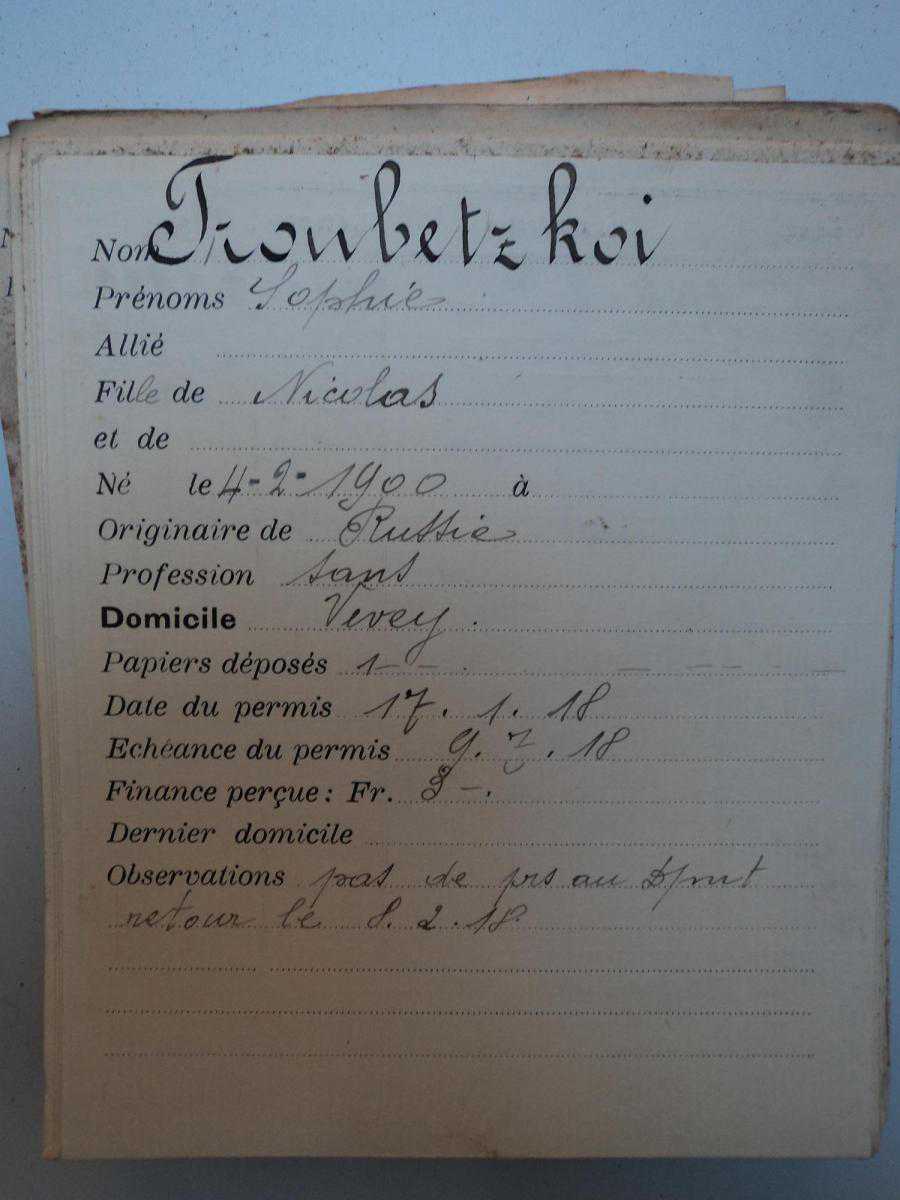 Nom Troubetzkoi
Prénoms Sophie
Allié
Fille de Nicolas
et de
Né le 4-2-1900 à
Originaire de Russie
Profession sans
Domicile Vevey.
Papiers déposés 1 – – . – – – – –
Date du permis 17. 1. 18
Echéance du permis 9. 7. 18
Finance perçue: Fr. 8 –.
Dernier domicile
Observations pas de prs au Dpmt
retour le 8. 2. 18.